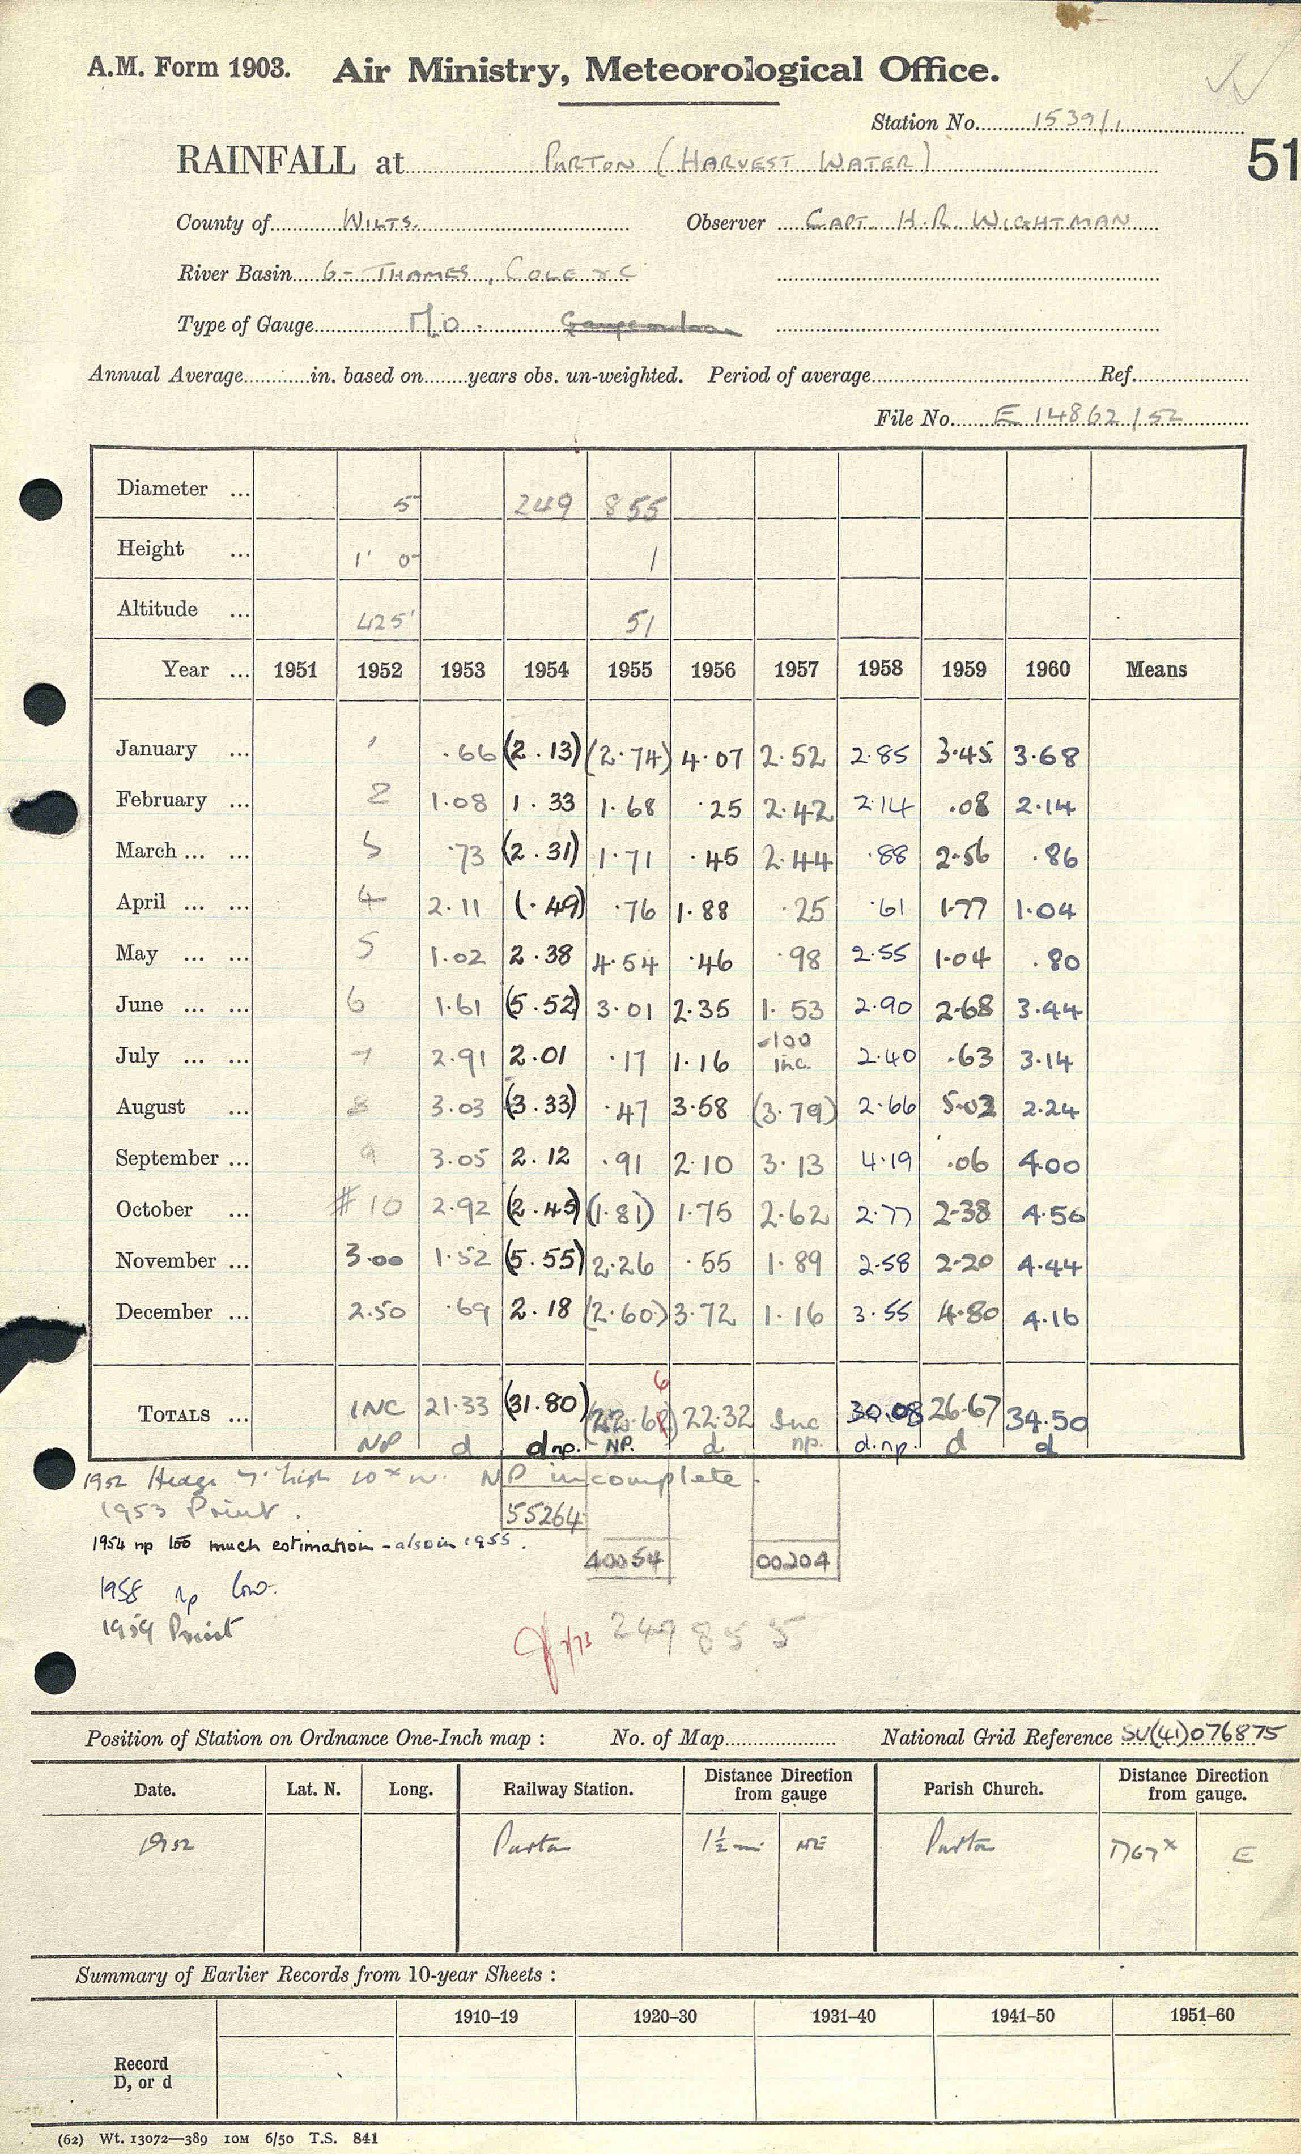 A.M. Form 1903. Air Ministry, Meteorological Office.
Station No. 1539/1
RAINFALL at PURTON (HARVEST WATER)
51
County of WILTS. Observer CAPT. H.R. WIGHTMAN
River Basin 6 - THAMES, COLE &C
Type of Gauge M.O.
Annual Average in. based on years obs. un-weighted. Period of average Ref.
File No. E 14862/52
Diameter ... 5 249 855
Height ... 1' 0 1
Altitude ... 425' 51
Year ... 1951 1952 1953 1954 1955 1956 1957 1958 1959 1960 Means
January ... 1 .66 (2.13) (2.74) 4.07 2.52 2.85 3.45 3.68
February ... 2 1.08 1.33 1.68 .25 2.42 2.14 .08 2.14
March ... ... 3 .73 (2.31) 1.71 .45 2.44 .88 2.56 .86
April ... ... 4 2.11 (.49) .76 1.88 .25 .61 1.77 1.04
May ... ... 5 1.02 2.38 4.54 .46 .98 2.55 1.04 .80
June ... ... 6 1.61 (5.52) 3.01 2.35 1.53 2.90 2.68 3.44
July ... ... 7 2.91 2.01 .17 1.16 -100 inc. 2.40 .63 3.14
August ... 8 3.03 (3.33) .47 3.58 (3.79) 2.66 5.03 2.24
September ... 9 3.05 2.12 .91 2.10 3.13 4.19 .06 4.00
October ... # 10 2.92 (2.45) (1.81) 1.75 2.62 2.77 2.38 4.56
November ... 3.00 1.52 (5.55) 2.26 .55 1.89 2.58 2.20 4.44
December ... 2.50 .69 2.18 (2.60) 3.72 1.16 3.55 4.80 4.16
6
TOTALS ... INC 21.33 (31.80) (22.62) 22.32 Inc 30.08 26.67 34.50
NP d d np. NP. d np. d.np. d d
1952 Hedge 7' high 10x W. NP incomplete.
1953 Print.
55264
1954 np too much estimation - also in 1955.
40054 00204
1958 np low.
1959 Print
7/73 249855
Position of Station on Ordnance One-Inch map : No. of Map National Grid Reference SU(41)076875
Date. Lat. N. Long. Railway Station. Distance from gauge Direction Parish Church. Distance from gauge. Direction
1952 Purton 1½ mi NE Purton 1767x E
Summary of Earlier Records from 10-year Sheets :
1910–19 1920–30 1931–40 1941–50 1951–60
Record
D, or d
(62) Wt. 13072—389 10M 6/50 T.S. 841